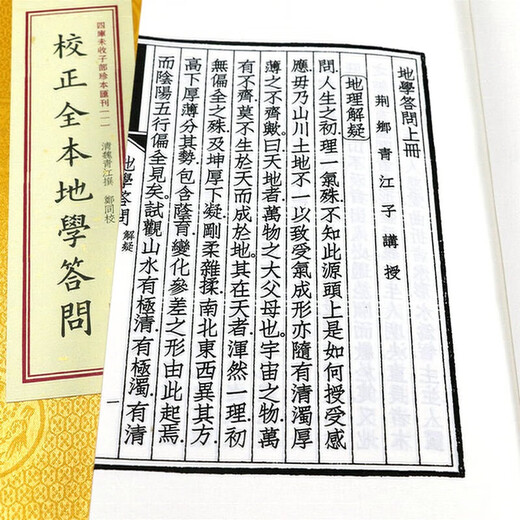 四庫未收子部珍本匯刊(一)
校正全本地學答問
清魏青江撰 鄭同校
地學答問上冊
荆鄉青江子講授
地理解疑
問.人生之初理一氣殊.不知此源頭上是如何授受感
應.毋乃山川土地不一以致受氣成形亦隨有清濁厚
薄之不齊歟.曰天地者.萬物之大父母也.宇宙之物.萬
有不齊.莫不生於天而成於地.其在天者.渾然一理.初
無偏全之殊.及坤厚下凝.剛柔雜揉.南北東西異其方.
高下厚薄分其勢.包含蔭育.變化參差之形.由此起焉.
而陰陽五行偏全見矣.試觀山水有極清.有極濁.有清
地學答問
解疑
一